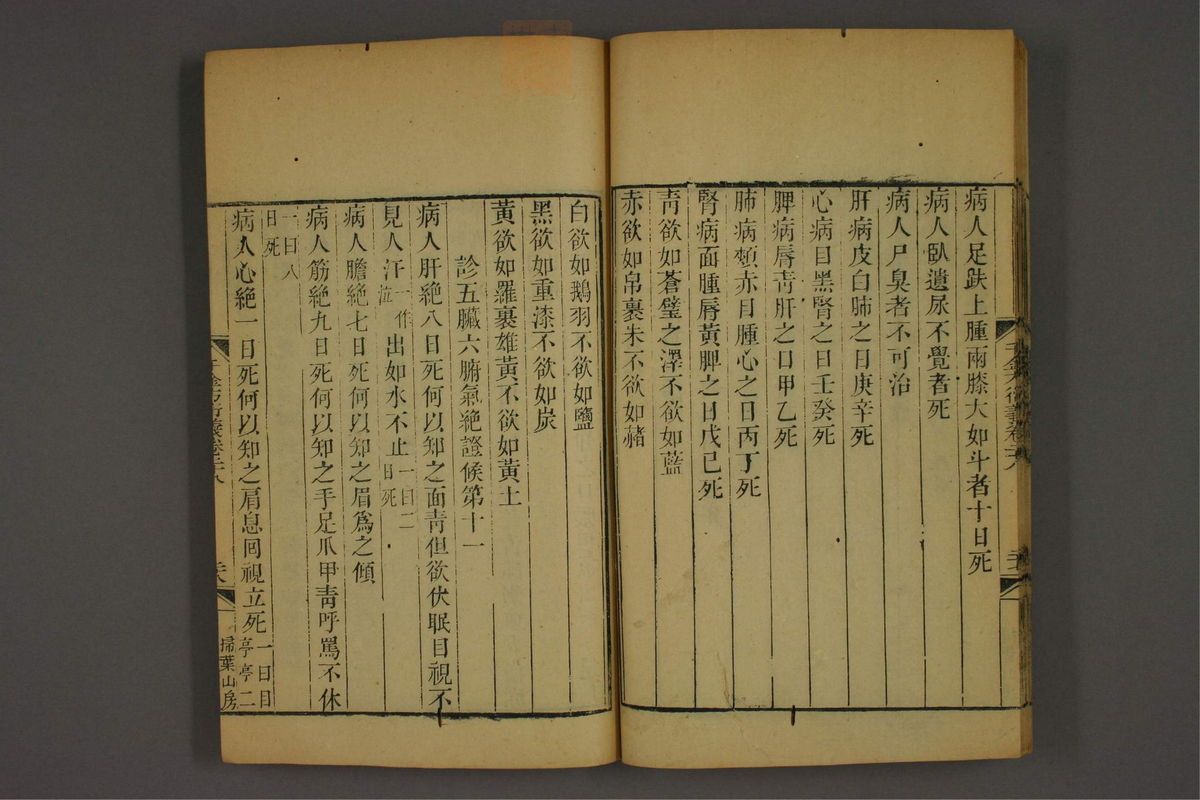 病人足趺上腫兩膝大如斗者十日死
病人臥遺尿不覺者死
病人尸臭者不可治
肝病皮白肺之日庚辛死
心病目黑腎之日壬癸死
脾病唇靑肝之日甲乙死
肺病頰赤目腫心之日丙丁死
腎病面腫唇黃脾之日戊己死
靑欲如蒼璧之澤不欲如藍
赤欲如帛裹朱不欲如赭
白欲如鵝羽不欲如鹽
黑欲如重漆不欲如炭
黃欲如羅裹雄黃不欲如黃土
診五臟六腑氣絕證候第十一
病人肝絕八日死何以知之面靑但欲伏眠目視不
見人汗一作泣出如水不止一曰二日死
病人膽絕七日死何以知之眉爲之傾
病人筋絕九日死何以知之手足爪甲靑呼罵不休
一曰八日死
病人心絕一日死何以知之肩息回視立死一曰目亭亭二
千金方衍義卷二十八
掃葉山房